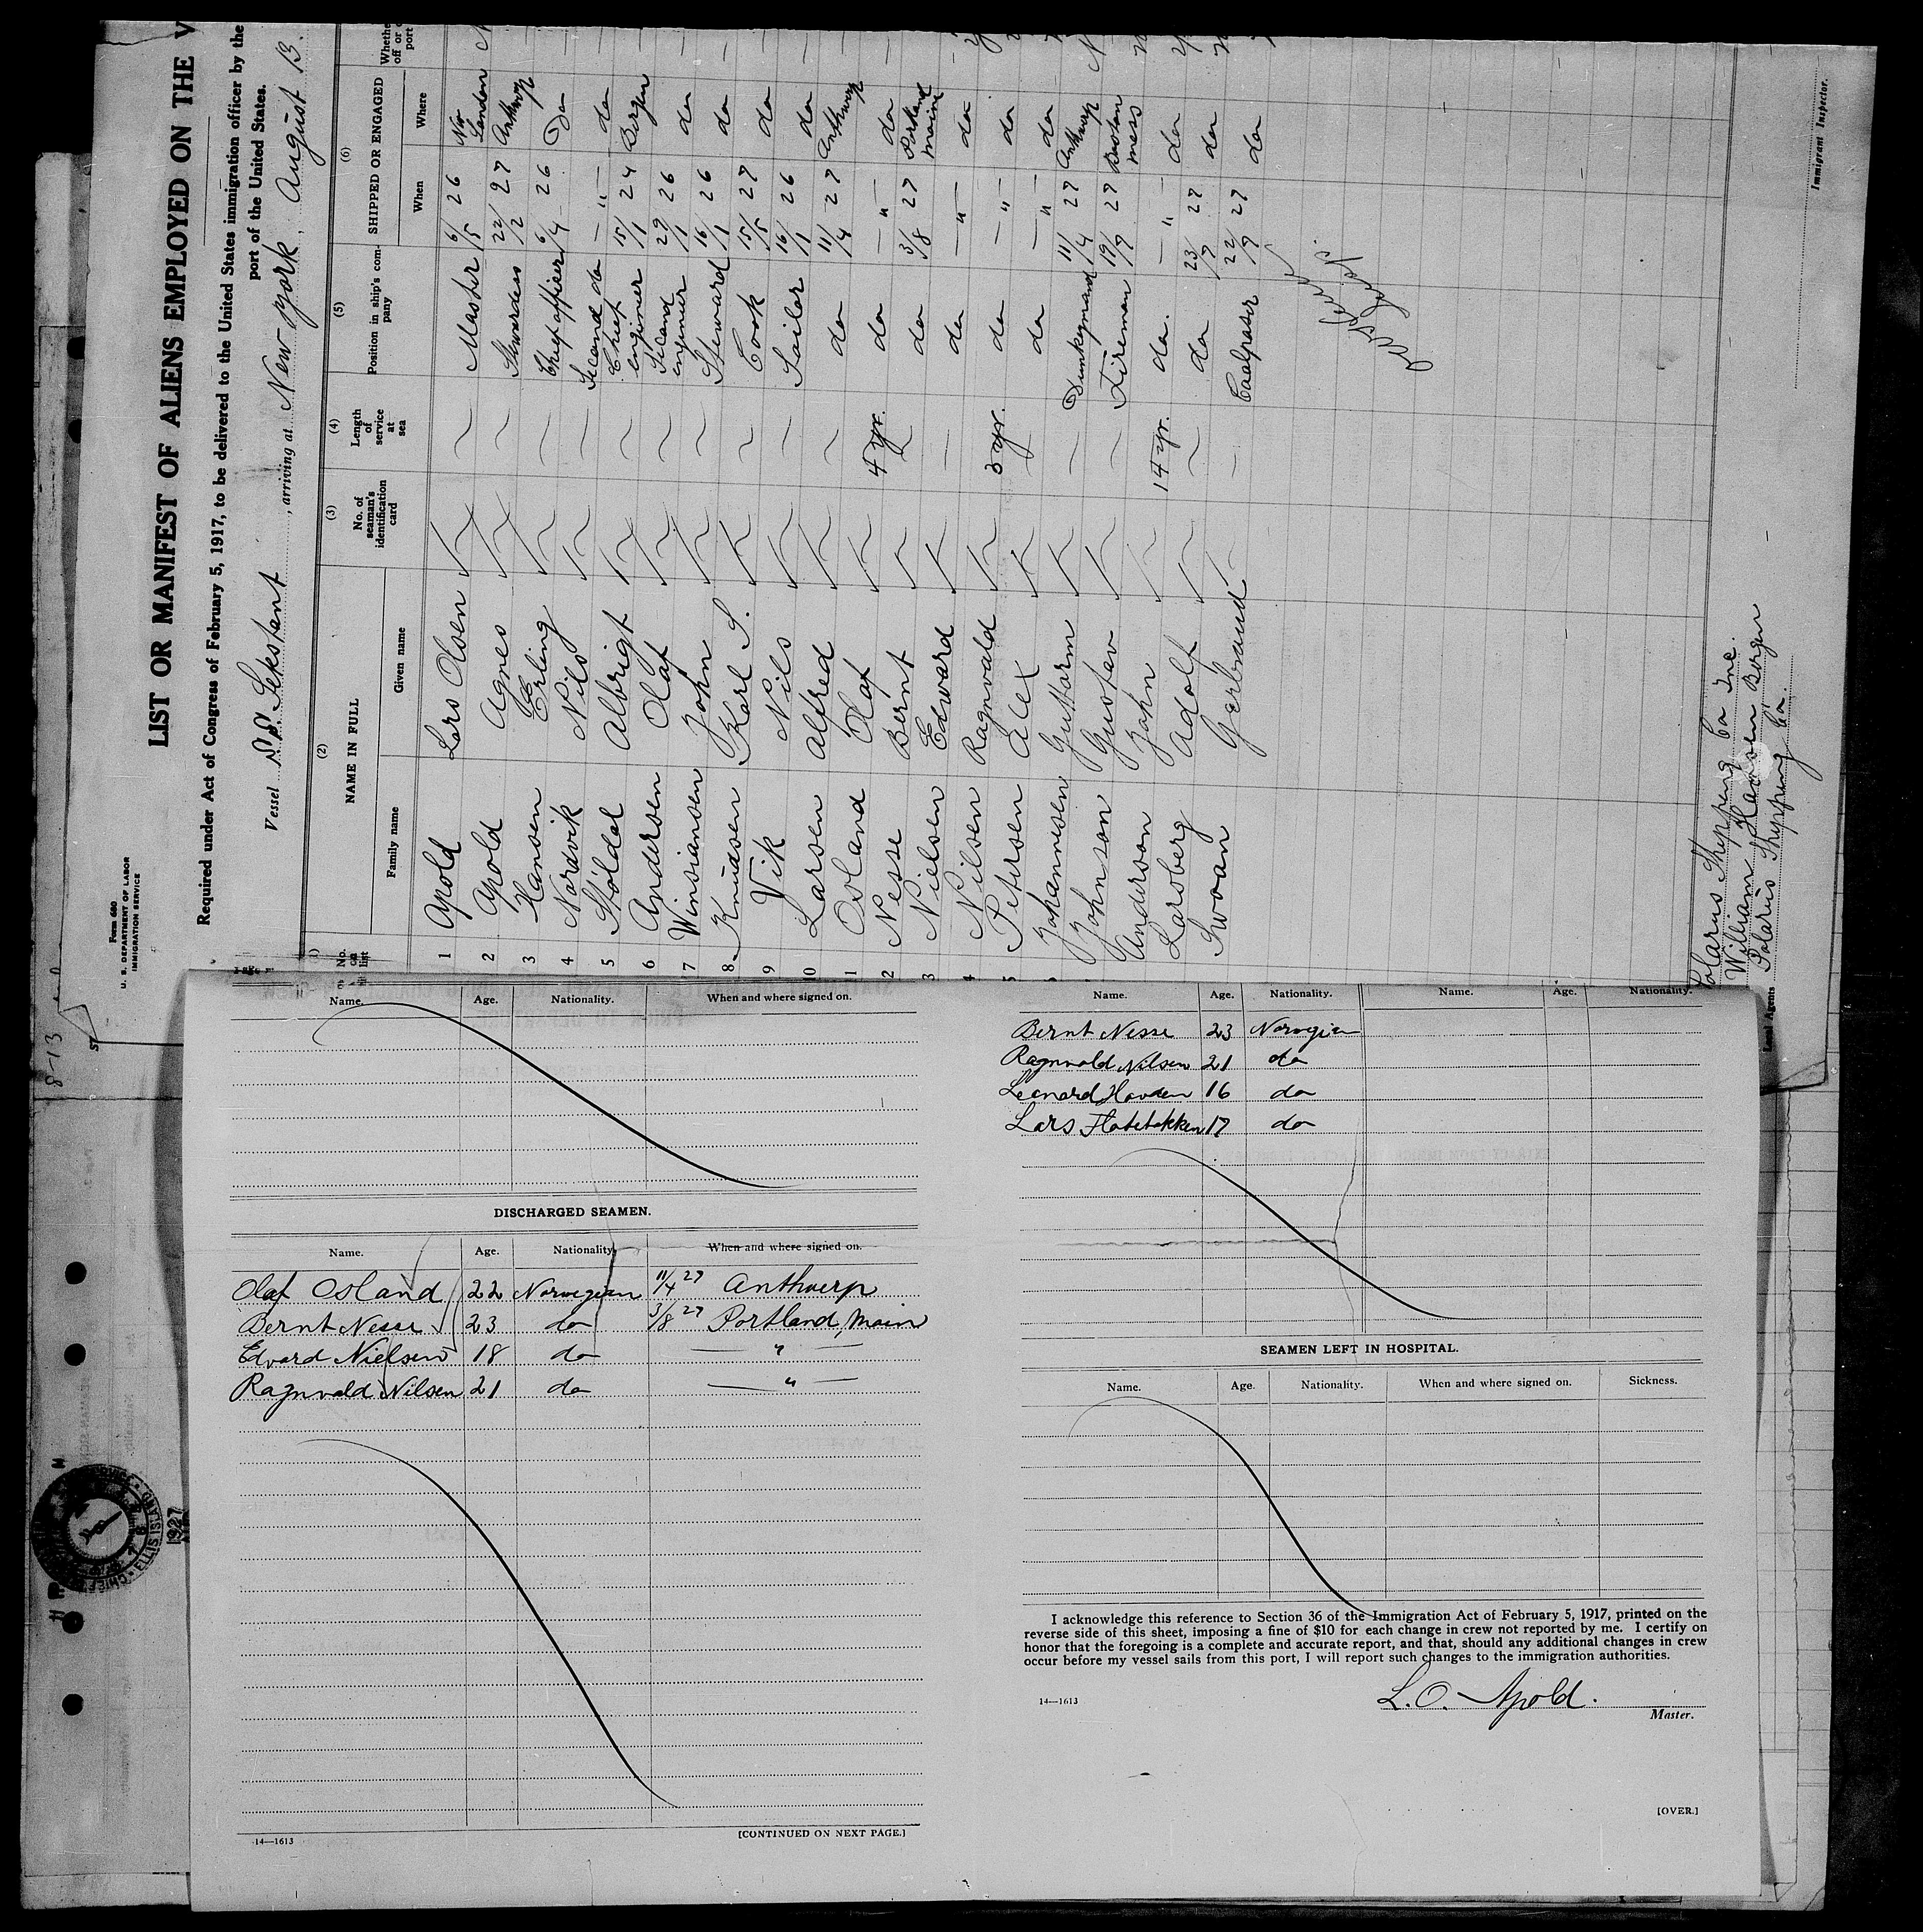 Form 680
U. S. DEPARTMENT OF LABOR
IMMIGRATION SERVICE
LIST OR MANIFEST OF ALIENS EMPLOYED ON THE V
Required under Act of Congress of February 5, 1917, to be delivered to the United States immigration officer by the
port of the United States.
Vessel S.S. Sekstant, arriving at New York, August 13.
(1) (2) (3) (4) (5) (6)
No. on list NAME IN FULL No. of seaman's identification card Length of service at sea Position in ship's company SHIPPED OR ENGAGED
Family name Given name When Where
1 Apold Lars Olsen Master 6/5 26 New London
2 Apold Agnes Stewardess 22/2 27 Anthwerp
3 Hansen Erling Chief officer 6/4 26 Do
4 Nordvik Nils Second do — " — do
5 Stöldal Albrigt Chief enginer 15/1 24 Bergen
6 Andersen Olaf Second enginer 29/1 26 do
7 Winsiansen John Steward 16/1 26 do
8 Knudsen Karl S. Cook 15/5 27 do
9 Vik Nils Sailor 16/1 26 do
10 Larsen Alfred do 11/4 27 Anthwerp
11 Osland Olaf 4 yr. do — " — do
2 Nesse Bernt do 3/8 27 Portland maine
3 Nielsen Edward do — " — do
4 Nilsen Ragnvald 3 yr. do — " — do
5 Petersen Alex do — " — do
6 Johannesen Guttorm Dunkeymand 11/4 27 Anthwerp
Johnson Gustav Fireman 19/7 27 Boston mass
Anderson John 14 yr. do. — " — do
Larsberg Adolf do 23/7 27 do
Swaan Gerbrand Coalpasor 22/7 27 do
Polarus Shipping Co Inc.
William Hansen Bergen
Local Agents Polarus Shipping Co.
Immigrant Inspector.
8-13
Name. Age. Nationality. When and where signed on.
DISCHARGED SEAMEN.
Name. Age. Nationality. When and where signed on.
Olaf Osland 22 Norwegian 11/4 27 Anthwerp
Bernt Nesse 23 do 3/8 27 Portland, Main
Edvard Nielsen 18 do — " —
Ragnvald Nilsen 21 do — " —
14—1613 [CONTINUED ON NEXT PAGE.]
Name. Age. Nationality. Name. Age. Nationality.
Bernt Nesse 23 Norwegian
Ragnvald Nilsen 21 do
Leonard Hovden 16 do
Lars Flatebakken 17 do
SEAMEN LEFT IN HOSPITAL.
Name. Age. Nationality. When and where signed on. Sickness.
I acknowledge this reference to Section 36 of the Immigration Act of February 5, 1917, printed on the
reverse side of this sheet, imposing a fine of $10 for each change in crew not reported by me. I certify on
honor that the foregoing is a complete and accurate report, and that, should any additional changes in crew
occur before my vessel sails from this port, I will report such changes to the immigration authorities.
14—1613 L. O. Apold.
Master.
[OVER.]
ELLIS ISLAND
1927